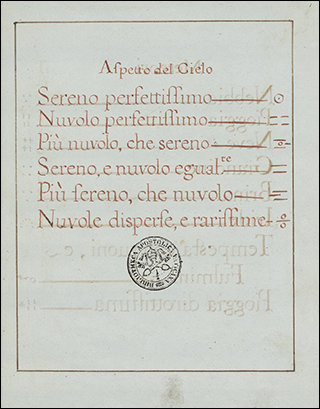 Aspetto del Cielo
Sereno perfettiſſimo
Nuvolo perfettiſſimo
Più nuvolo, che sereno
Sereno, e nuvolo egual.re
Più ſereno, che nuvolo
Nuvole disperſe, e rariſſime
BIBLIOTHECA APOSTOLICA VATICANA